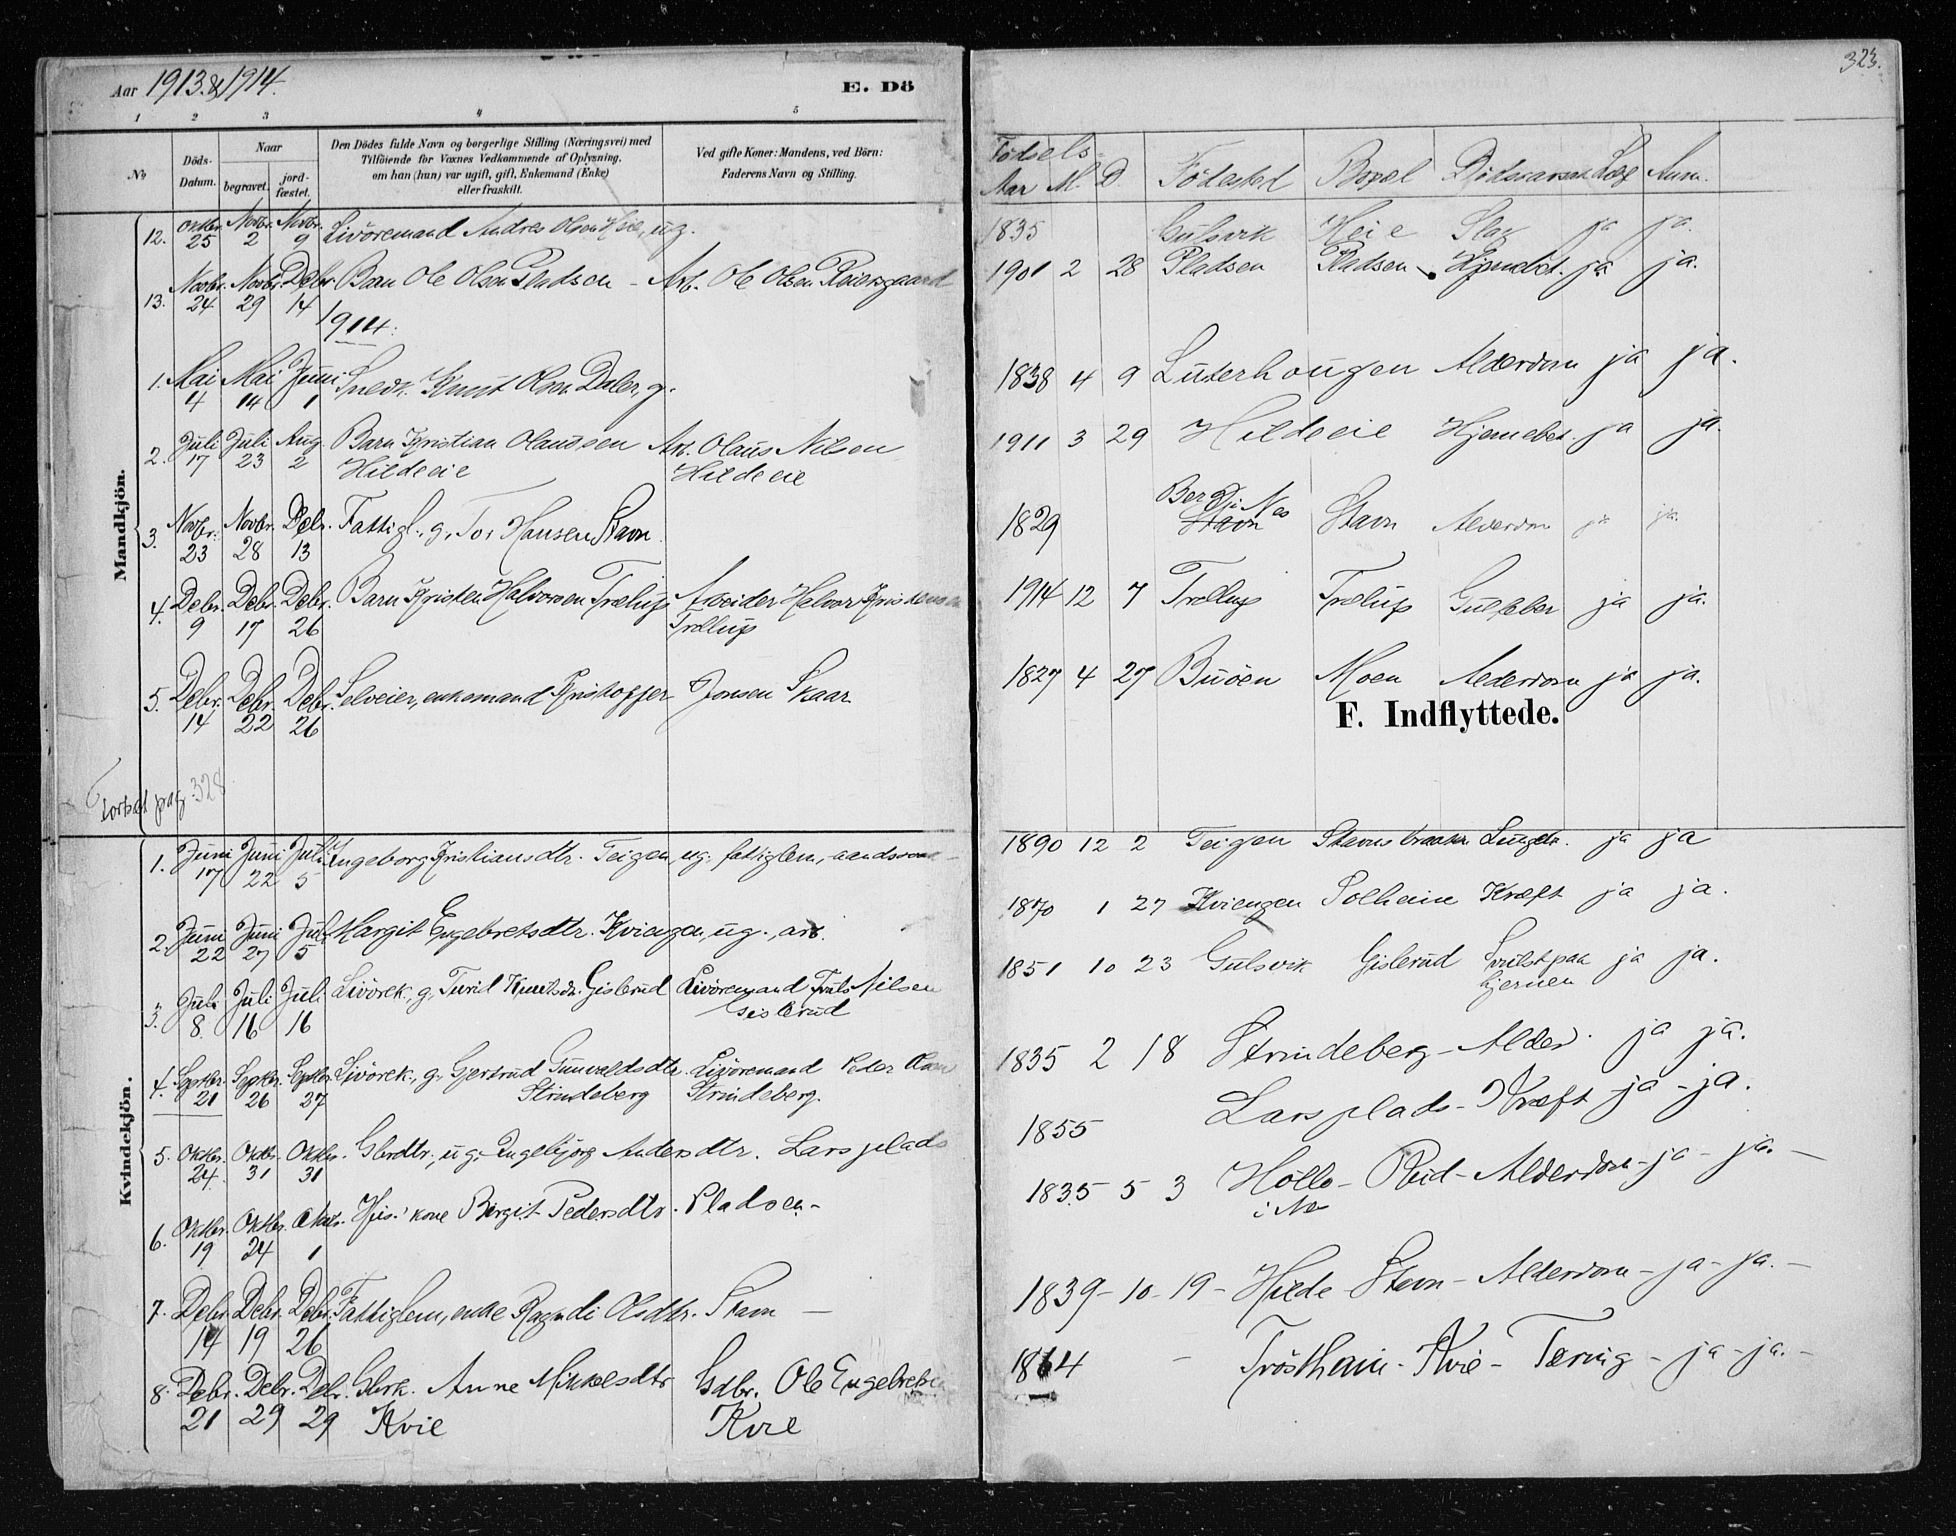 Aar 1913 & 1914.
E. Dö
323.
1 2 3 4 5
No
Döds-Datum.
Naar
begravet.
jord-fæstet.
Den Dödes fulde Navn og borgerlige Stilling (Næringsvei) med
Tilföiende for Voxnes Vedkommende af Oplysning,
om han (hun) var ugift, gift, Enkemand (Enke)
eller fraskilt.
Ved gifte Koner: Mandens, ved Börn:
Faderens Navn og Stilling.
Fødsels-
Aar M. D. Födested Bopæl Dödsaarsak Læg Anm.
Mandkjön.
12. Oktbr. 25 Novbr. 2 Novbr. 9 Livöremand Andres Olsen Heie, ug. 1835 Gulsvik Heie Slag ja ja.
13. Novbr. 24 Novbr. 29 Debr. 14 Barn Ole Olsen Pladsen - Arb. Ole Olsen Reiersgaard 1901 2 28 Pladsen Pladsen ja ja.
1914:
1. Mai 4 Mai 14 Juni 1 Snedk. Knut Olsen Daler, g. 1838 4 9 Luterhougen Alderdom ja ja.
2. Juli 17 Juli 23 Aug. 2 Barn Kristian Olaussen Arb. Olaus Nilsen 1911 3 29 Hildeeie Hjernebet. ja ja.
Hildeeie Hildeeie
3. Novbr. 23 Novbr. 28 Debr. 13 Fattigl., g. Tor Hansen Stavn 1829 i Nes Stavn Stavn Alderdom ja ja.
4. Debr. 9 Debr. 17 Debr. 26 Barn Kristen Halvorsen Trølup Arbeider Halvor Kristensen 1914 12 7 Trøllup Trølup Gulfeber ja ja.
Trøllup
5. Debr. 14 Debr. 22 Debr. 26 Selveier, enkemand Kristoffer Jonsen Skaar 1827 4 27 Buöen Moen Alderdom ja ja.
F. Indflyttede.
Fortsat pag. 328
Kvindekjön.
1. Juni 17 Juni 22 Juli 5 Ingeborg Kristiansdtr. Teigen, ug. fattiglem, 1890 12 2 Teigen Stavns ja ja
2. Juni 22 Juni 27 Juli 5 Margit Engebretsdtr. Kviengen, ug., arb. 1870 1 27 Kviengen Solheim Kræft ja ja.
3. Juli 8 Juli 16 Juli 16 Livörek., g. Turid Knutsdtr. Gislerud Livöremand Truls Nilsen 1851 10 23 Gulsvik Gislerud Svulst paa ja ja.
Gislerud hjernen
4. Septbr. 21 Septbr. 26 Septbr. 27 Livörek., g. Gjertrud Gunvaldsdtr. Livöremand Peder Olsen 1835 2 18 Strindeberg - Alder. ja ja.
Strindeberg Strindeberg.
5. Oktbr. 24 Oktbr. 31 Oktbr. 31 Gbrdtr., ug. Ingebjørg Andersdtr. Larsplads 1855 Larsplads - Kræft ja - ja.
6. Oktbr. 19 Oktbr. 24 1 kone Birgit Pedersdtr. Pladsen - 1835 5 3 Höllo - Rud - Alderdom - ja - ja. -
i Nes
7. Debr. 14 Debr. 19 Debr. 26 Fattiglem, enke Ragndi Olsdtr. Stavn - 1839 - 10 - 19 - Hilde Stavn - Alderdom - ja - ja. -
8. Debr. 21 Debr. 29 Debr. 29 Gbrk. Anne Mikkelsdtr Gdbr. Ole Engebretsen - Tröstheim - Kvie - Tæring - ja - ja. -
Kvie Kvie